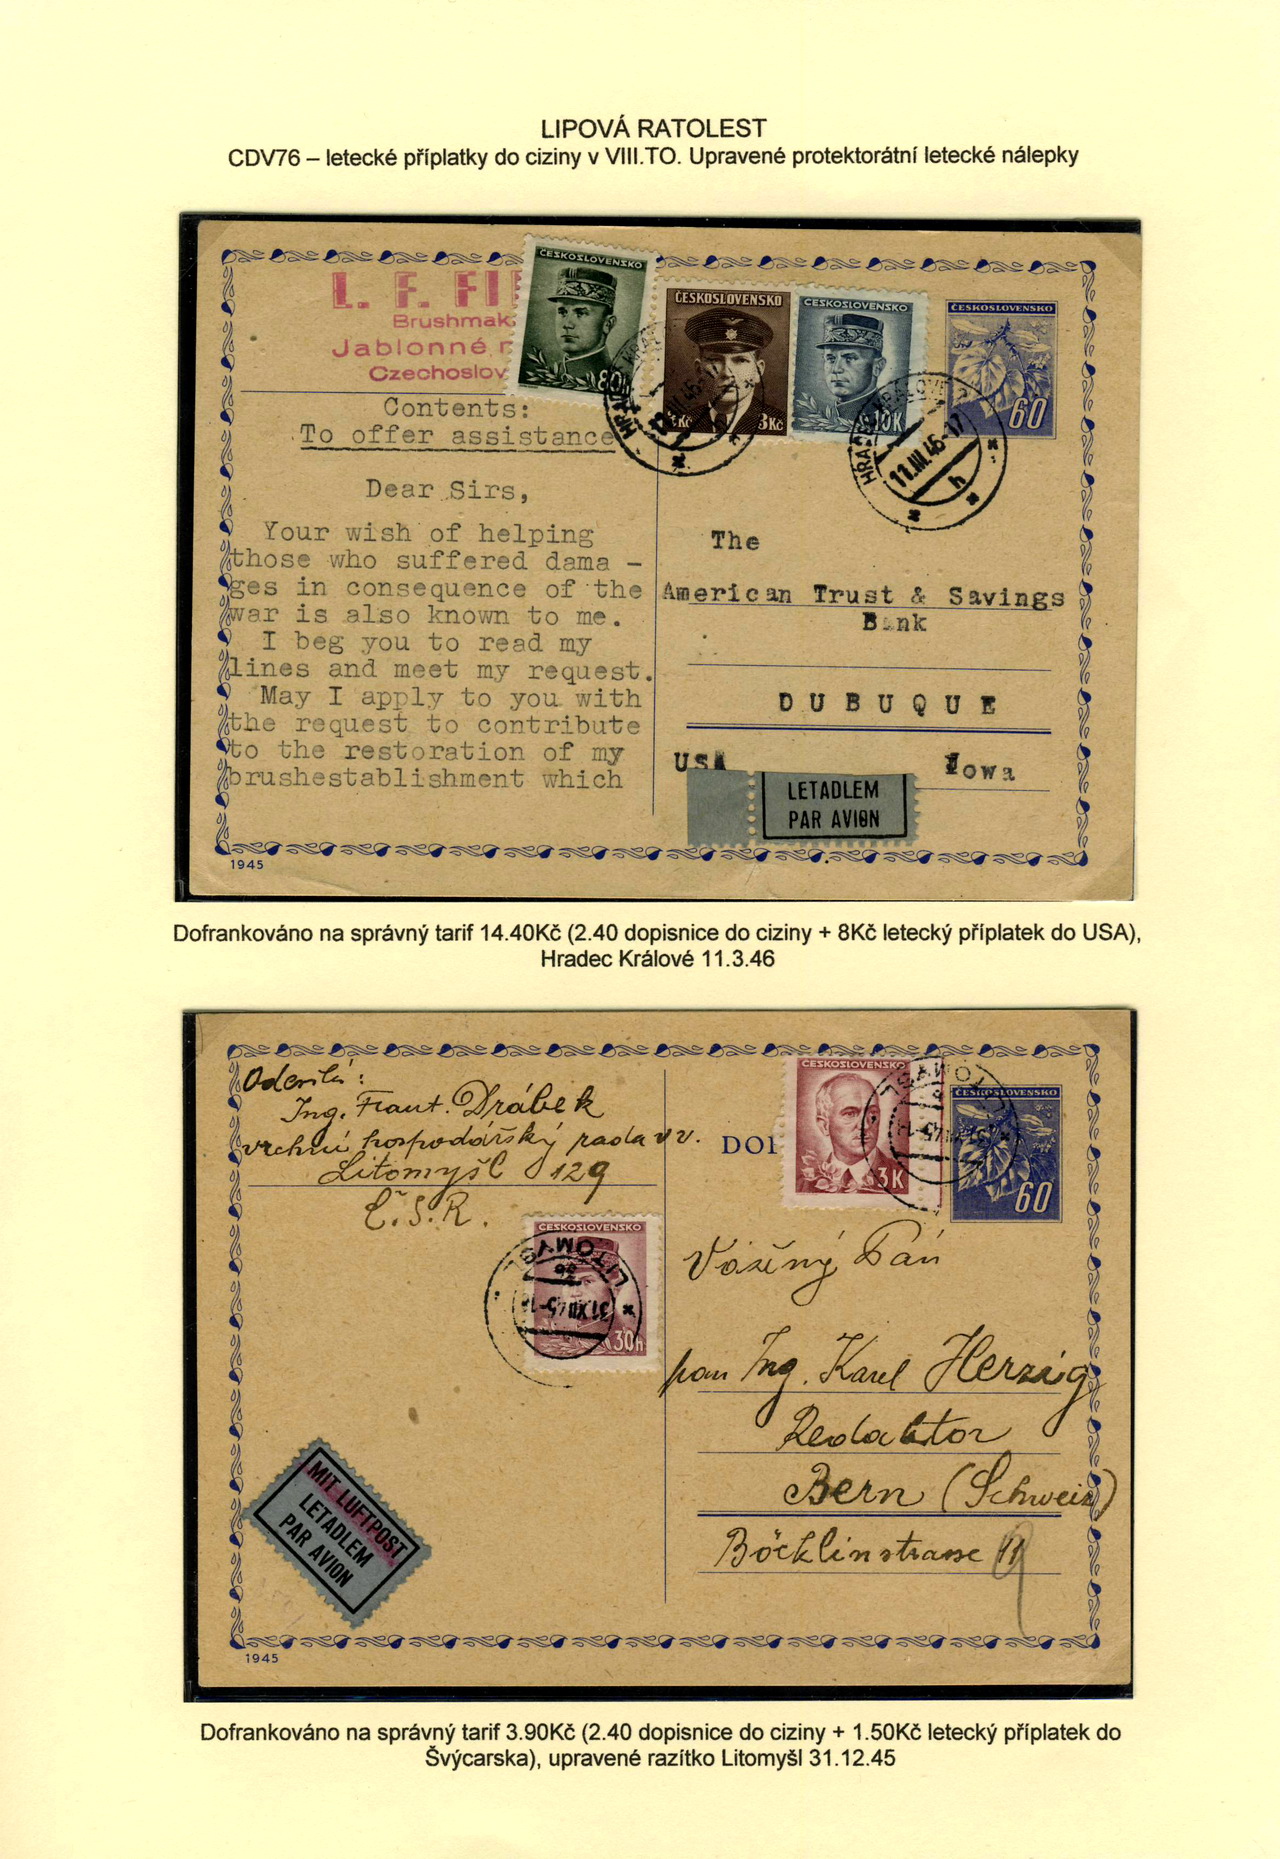 LIPOVÁ RATOLEST
CDV76 – letecké příplatky do ciziny v VIII.TO. Upravené protektorátní letecké nálepky
L. F. FI
Brushmak
Jablonné n
Czechoslov
ČESKOSLOVENSKO
80
ČESKOSLOVENSKO
3Kč
ČESKOSLOVENSKO
10K
ČESKOSLOVENSKO
60
HRADEC KRÁLOVÉ
11.III.46-17
h
Contents:
To offer assistance
Dear Sirs,
Your wish of helping
those who suffered dama -
ges in consequence of the
war is also known to me.
I beg you to read my
lines and meet my request.
May I apply to you with
the request to contribute
to the restoration of my
brushestablishment which
The
American Trust & Savings
Bank
DUBUQUE
USA
Iowa
LETADLEM
PAR AVION
1945
Dofrankováno na správný tarif 14.40Kč (2.40 dopisnice do ciziny + 8Kč letecký příplatek do USA),
Hradec Králové 11.3.46
Odesílá:
Ing. Frant. Drábek
vrchní hospodářský rada v v.
Litomyšl 129
Č.S.R.
DOP
ČESKOSLOVENSKO
3K
ČESKOSLOVENSKO
60
LITOMYŠL
31.XII.45-18
ČESKOSLOVENSKO
30h
LITOMYŠL
31.XII.45-18
Vážený Pán
pan Ing. Karel Herzig
Redaktor
Bern (Schweiz)
Böcklinstrasse 11
MIT LUFTPOST
LETADLEM
PAR AVION
1945
Dofrankováno na správný tarif 3.90Kč (2.40 dopisnice do ciziny + 1.50Kč letecký příplatek do
Švýcarska), upravené razítko Litomyšl 31.12.45